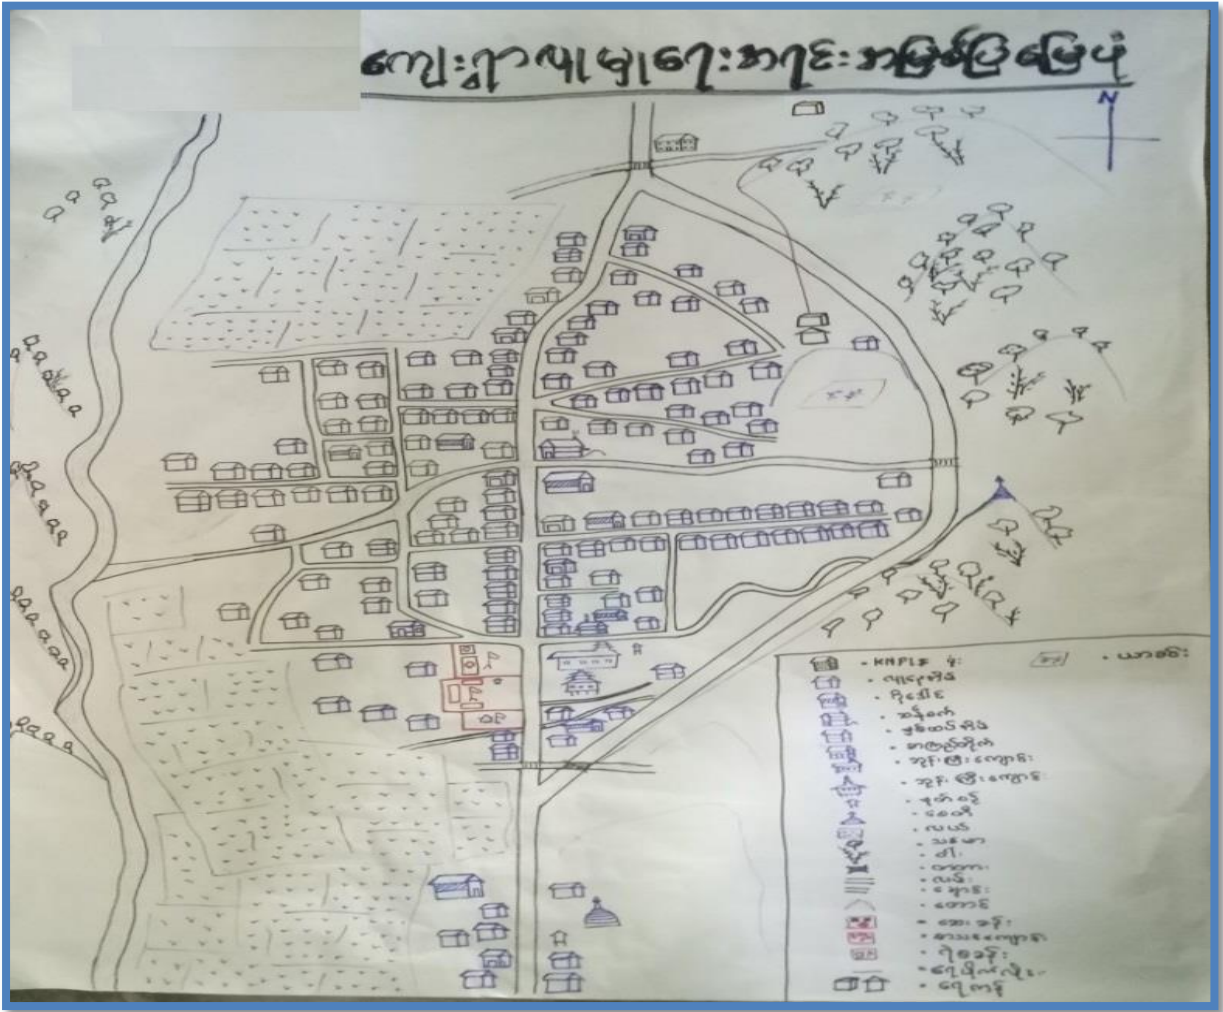 ကျေးရွာလူမှုရေးအရင်းအမြစ်ပြမြေပုံ
N
• KNPLF ရုံး
• ယာခင်း
• လူနေအိမ်
• ဂိုဒေါင်
• ဆန်စက်
• စာကြည့်တိုက်
• ဘုန်းကြီးကျောင်း
• ဘုန်းကြီးကျောင်း
• နတ်စင်
• စေတီ
• လယ်
• သစ်ပင်
• ဝါး
• တံတား
• လမ်း
• ချောင်း
• တောင်
• ဆေးခန်း
• စာသင်ကျောင်း
• ရဲစခန်း
• ရေပိုက်လိုင်း
• ရေကန်